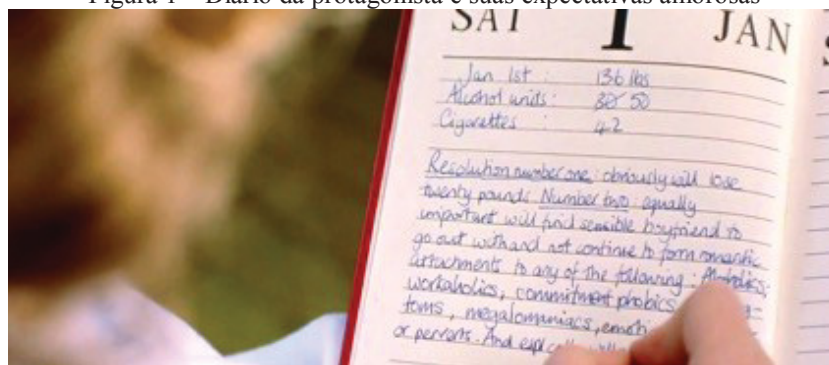 Figura 1 – Diário da protagonista e suas expectativas amorosas
SAT 1 JAN
Jan 1st : 136 lbs
Alcohol units : 30 50
Cigarettes : 42
Resolution number one: obviously will lose
twenty pounds. Number two: equally
important will find sensible boyfriend to
go out with and not continue to form romantic
attachments to any of the following: Alcoholics,
workaholics, commitment phobics,
toms, megalomaniacs,
or perverts. And